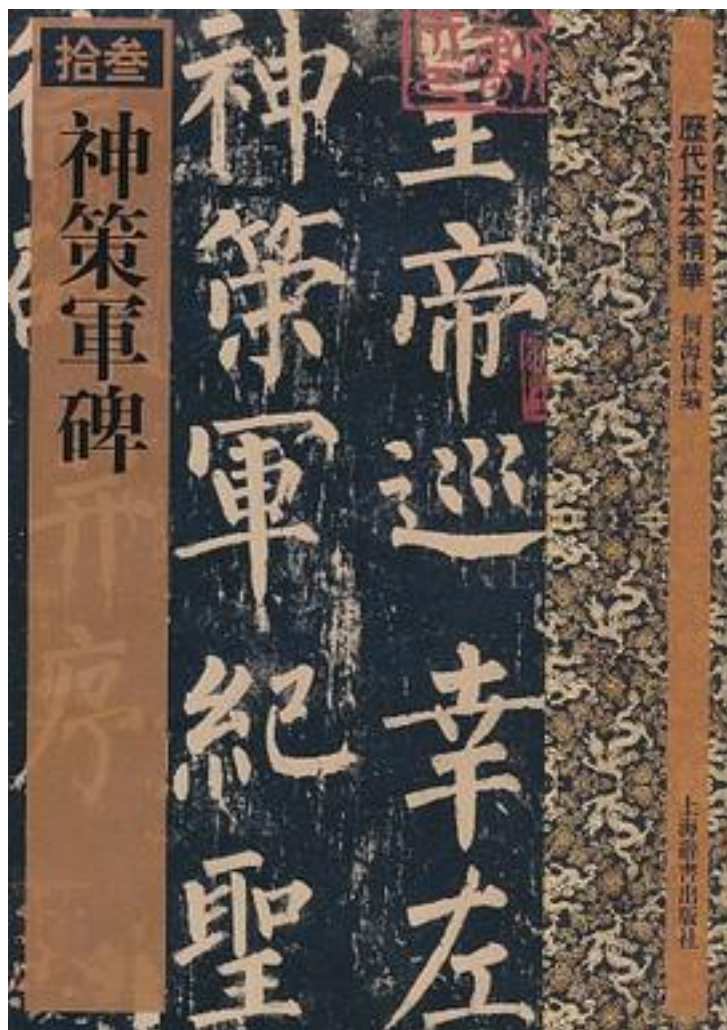 歷代拓本精華 何海林编
上海辭書出版社
皇帝巡幸左
神策軍紀聖
拾叁
神策軍碑